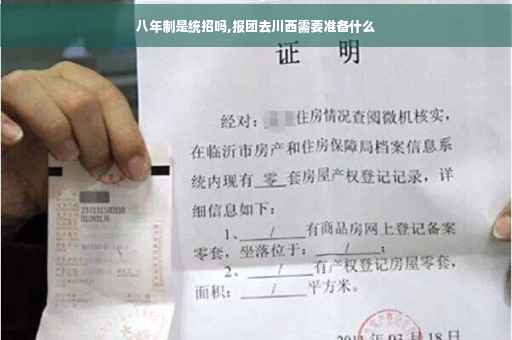 八年制是统招吗,报团去川西需要准备什么
证 明
经对：住房情况查阅微机核实，
在临沂市房产和住房保障局档案信息系
统内现有 零 套房屋产权登记记录，详
细信息如下：
1、 / 有商品房网上登记备案
零套，坐落位于： / ；
2、 / 有产权登记房屋零套，
面积： / 平方米。
03 月 18 日